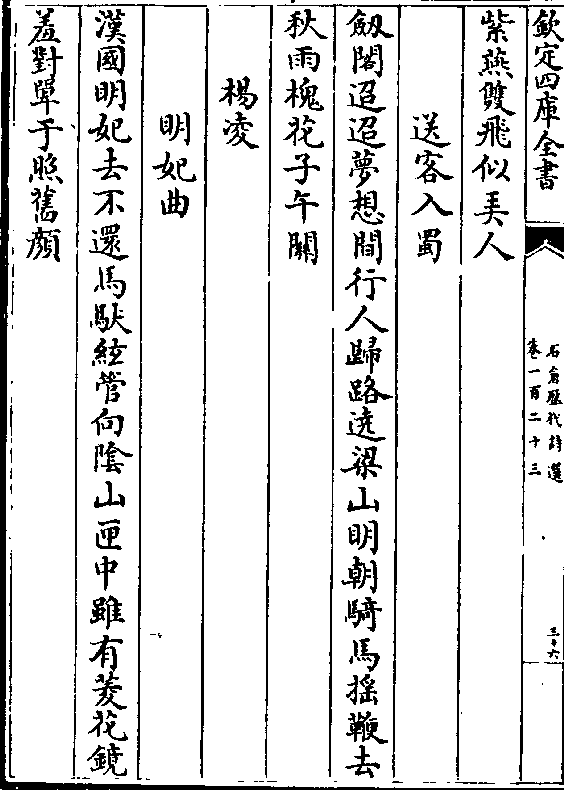 欽定四庫全書
石倉歷代詩選
卷一百二十三
三十六
紫燕雙飛似美人
送客入蜀
劔閣迢迢夢想間行人歸路遶梁山明朝騎馬揺鞭去
秋雨槐花子午關
楊凌
明妃曲
漢國明妃去不還馬馱絃管向陰山匣中雖有菱花鏡
羞對單于照舊顔